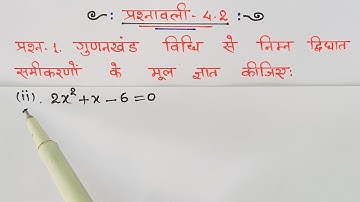 प्रश्नावली - 4.2
प्रश्न-1. गुणनखंड विधि से निम्न द्विघात
समीकरणों के मूल ज्ञात कीजिए:
(ii). 2x²+x-6=0